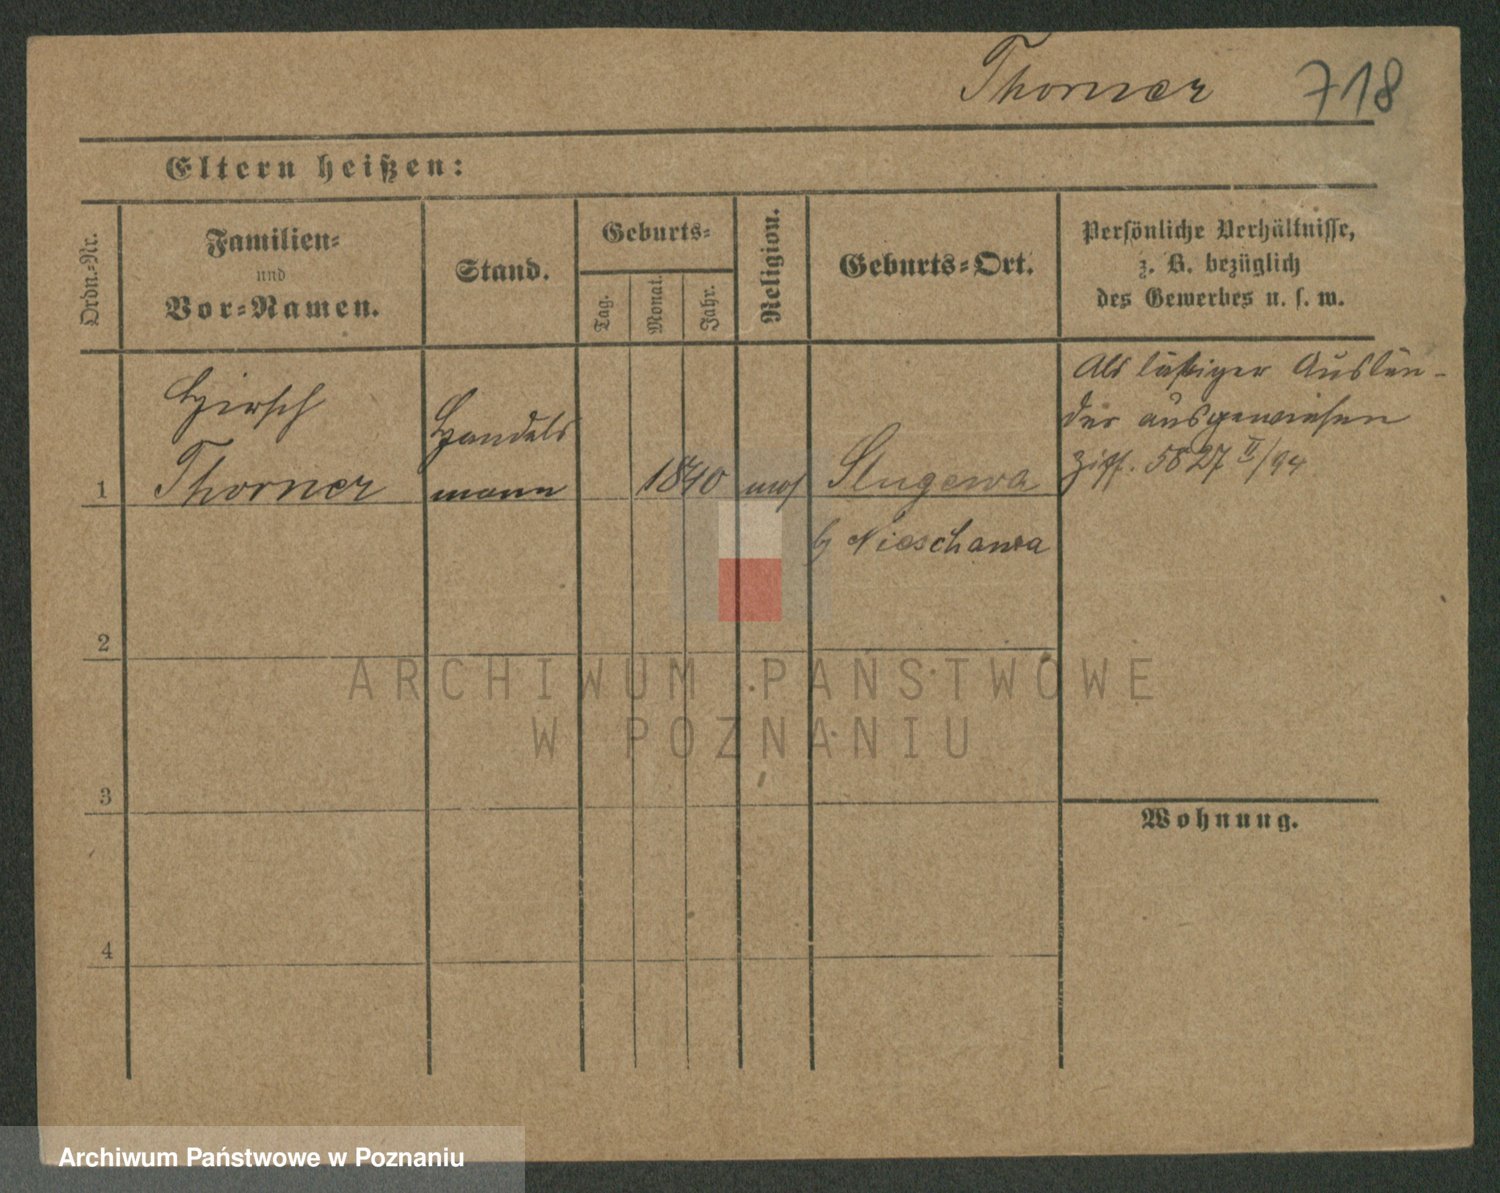 Thorner 718
Eltern heißen:
Ordn.=Nr.
Familien=
und
Vor=Namen.
Stand.
Geburts=
Tag.
Monat.
Jahr.
Religion.
Geburts=Ort.
Persönliche Verhältnisse,
z. B. bezüglich
des Gewerbes u. s. w.
1
Hirsch
Thorner
Handels
mann
1840
mos
Slugewa
b/ Nieschawa
Als lästiger Auslän-
der ausgewiesen
5827 II/94
2
3
4
Wohnung.
ARCHIWUM PAŃSTWOWE
W POZNANIU
Archiwum Państwowe w Poznaniu